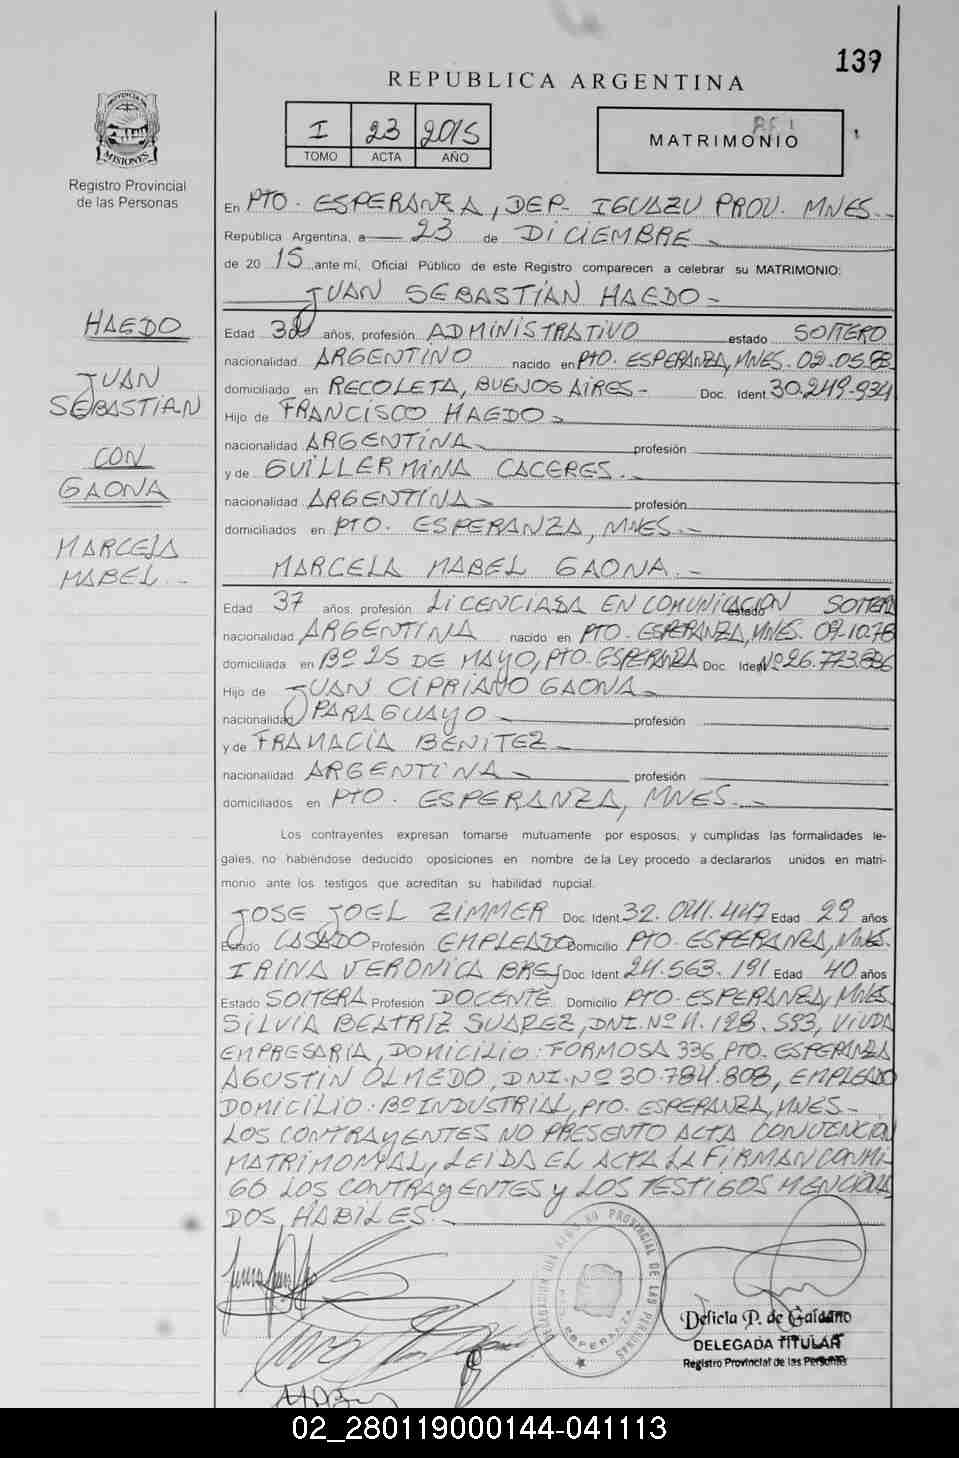 139
REPUBLICA ARGENTINA
I 23 2015
TOMO ACTA AÑO
MATRIMONIO
PROVINCIA DE
MISIONES
Registro Provincial
de las Personas
En PTO. ESPERANZA, DEP. IGUAZU PROV. MNES.-
República Argentina, a 23 de DICIEMBRE
de 2015 ante mí, Oficial Público de este Registro comparecen a celebrar su MATRIMONIO:
JUAN SEBASTIAN HAEDO-
HAEDO
JUAN
SEBASTIAN
CON
GAONA
MARCELA
MABEL.-
Edad 32 años, profesión ADMINISTRATIVO estado SOLTERO
nacionalidad ARGENTINO nacido en PTO. ESPERANZA, MNES. 02.05.83
domiciliado en RECOLETA, BUENOS AIRES- Doc. Ident. 30.249.934
Hijo de FRANCISCO HAEDO-
nacionalidad ARGENTINA profesión
y de GUILLERMINA CACERES.
nacionalidad ARGENTINA- profesión
domiciliados en PTO. ESPERANZA, MNES.-
MARCELA MABEL GAONA.-
Edad 37 años, profesión LICENCIADA EN COMUNICACION estado SOLTERA
nacionalidad ARGENTINA nacido en PTO. ESPERANZA, MNES. 09.10.78
domiciliada en Bº 25 DE MAYO, PTO. ESPERANZA Doc. Ident Nº 26.773.686
Hijo de JUAN CIPRIANO GAONA-
nacionalidad PARAGUAYO profesión
y de FRAMACIA BENITEZ
nacionalidad ARGENTINA- profesión
domiciliados en PTO. ESPERANZA, MNES.-
Los contrayentes expresan tomarse mutuamente por esposos, y cumplidas las formalidades le-
gales, no habiéndose deducido oposiciones en nombre de la Ley procedo a declararlos unidos en matri-
monio ante los testigos que acreditan su habilidad nupcial.
JOSE JOEL ZIMMER Doc. Ident 32.041.447 Edad 29 años
Estado CASADO Profesión EMPLEADO Domicilio PTO. ESPERANZA, MNES.
IRINA VERONICA BREJ Doc. Ident 24.563.191 Edad 40 años
Estado SOLTERA Profesión DOCENTE Domicilio PTO. ESPERANZA, MNES.
SILVIA BEATRIZ SUAREZ, DNI. Nº 11.128.593, VIUDA
EMPRESARIA, DOMICILIO: FORMOSA 336, PTO. ESPERANZA
AGUSTIN OLMEDO, DNI. Nº 30.784.808, EMPLEADO
DOMICILIO: Bº INDUSTRIAL, PTO. ESPERANZA, MNES-
LOS CONTRAYENTES NO PRESENTO ACTA CONVENCION
MATRIMONYAL, LEIDA EL ACTA LA FIRMAN CONMI-
GO LOS CONTRAYENTES y LOS TESTIGOS MENCIONA
DOS, HABILES.
PROVINCIAL DE LAS PERSONAS
ESPERANZA
Delicia P. de Galeano
DELEGADA TITULAR
Registro Provincial de las Personas
02_280119000144-041113